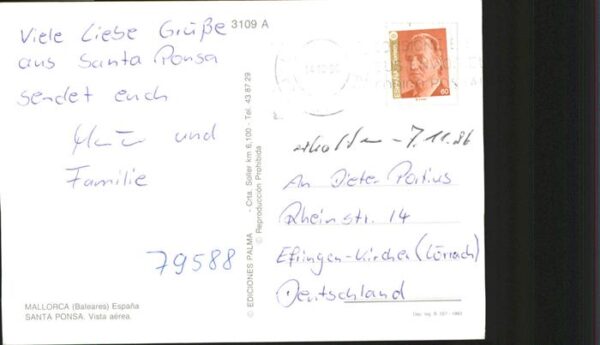 Viele Liebe Grüße
aus Santa Ponsa
sendet euch
und
Familie
79588
3109 A
MALLORCA (Baleares) España
SANTA PONSA. Vista aérea.
© EDICIONES PALMA - Crta. Soller km 6,100 - Tel. 43 87 29
© Reproducción Prohibida
ESPAÑA Correos
60
erhalten - 7.11.96
An Dieter
Rheinstr. 14
Efringen-Kirchen (Lörrach)
Deutschland